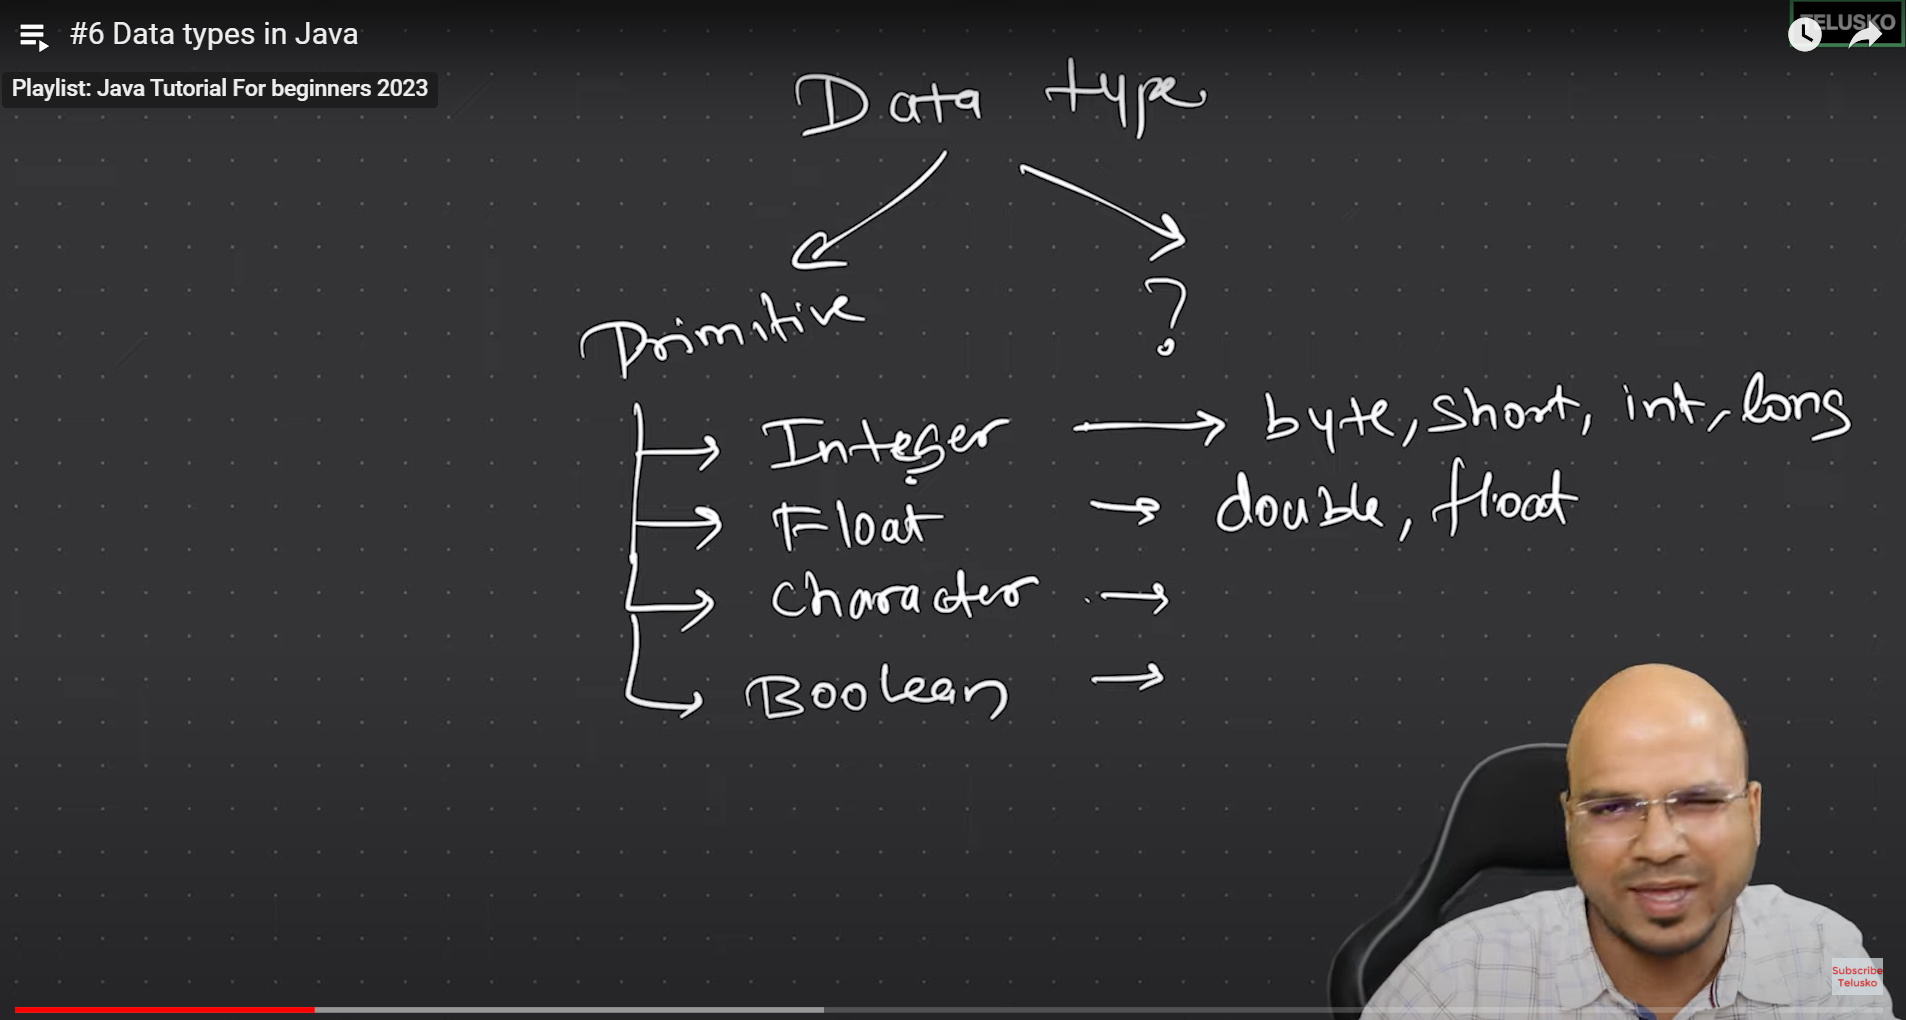 #6 Data types in Java
TELUSKO
Playlist: Java Tutorial For beginners 2023
Data type
Primitive
?
Integer → byte, short, int, long
Float → double, float
Character →
Boolean →
Subscribe
Telusko